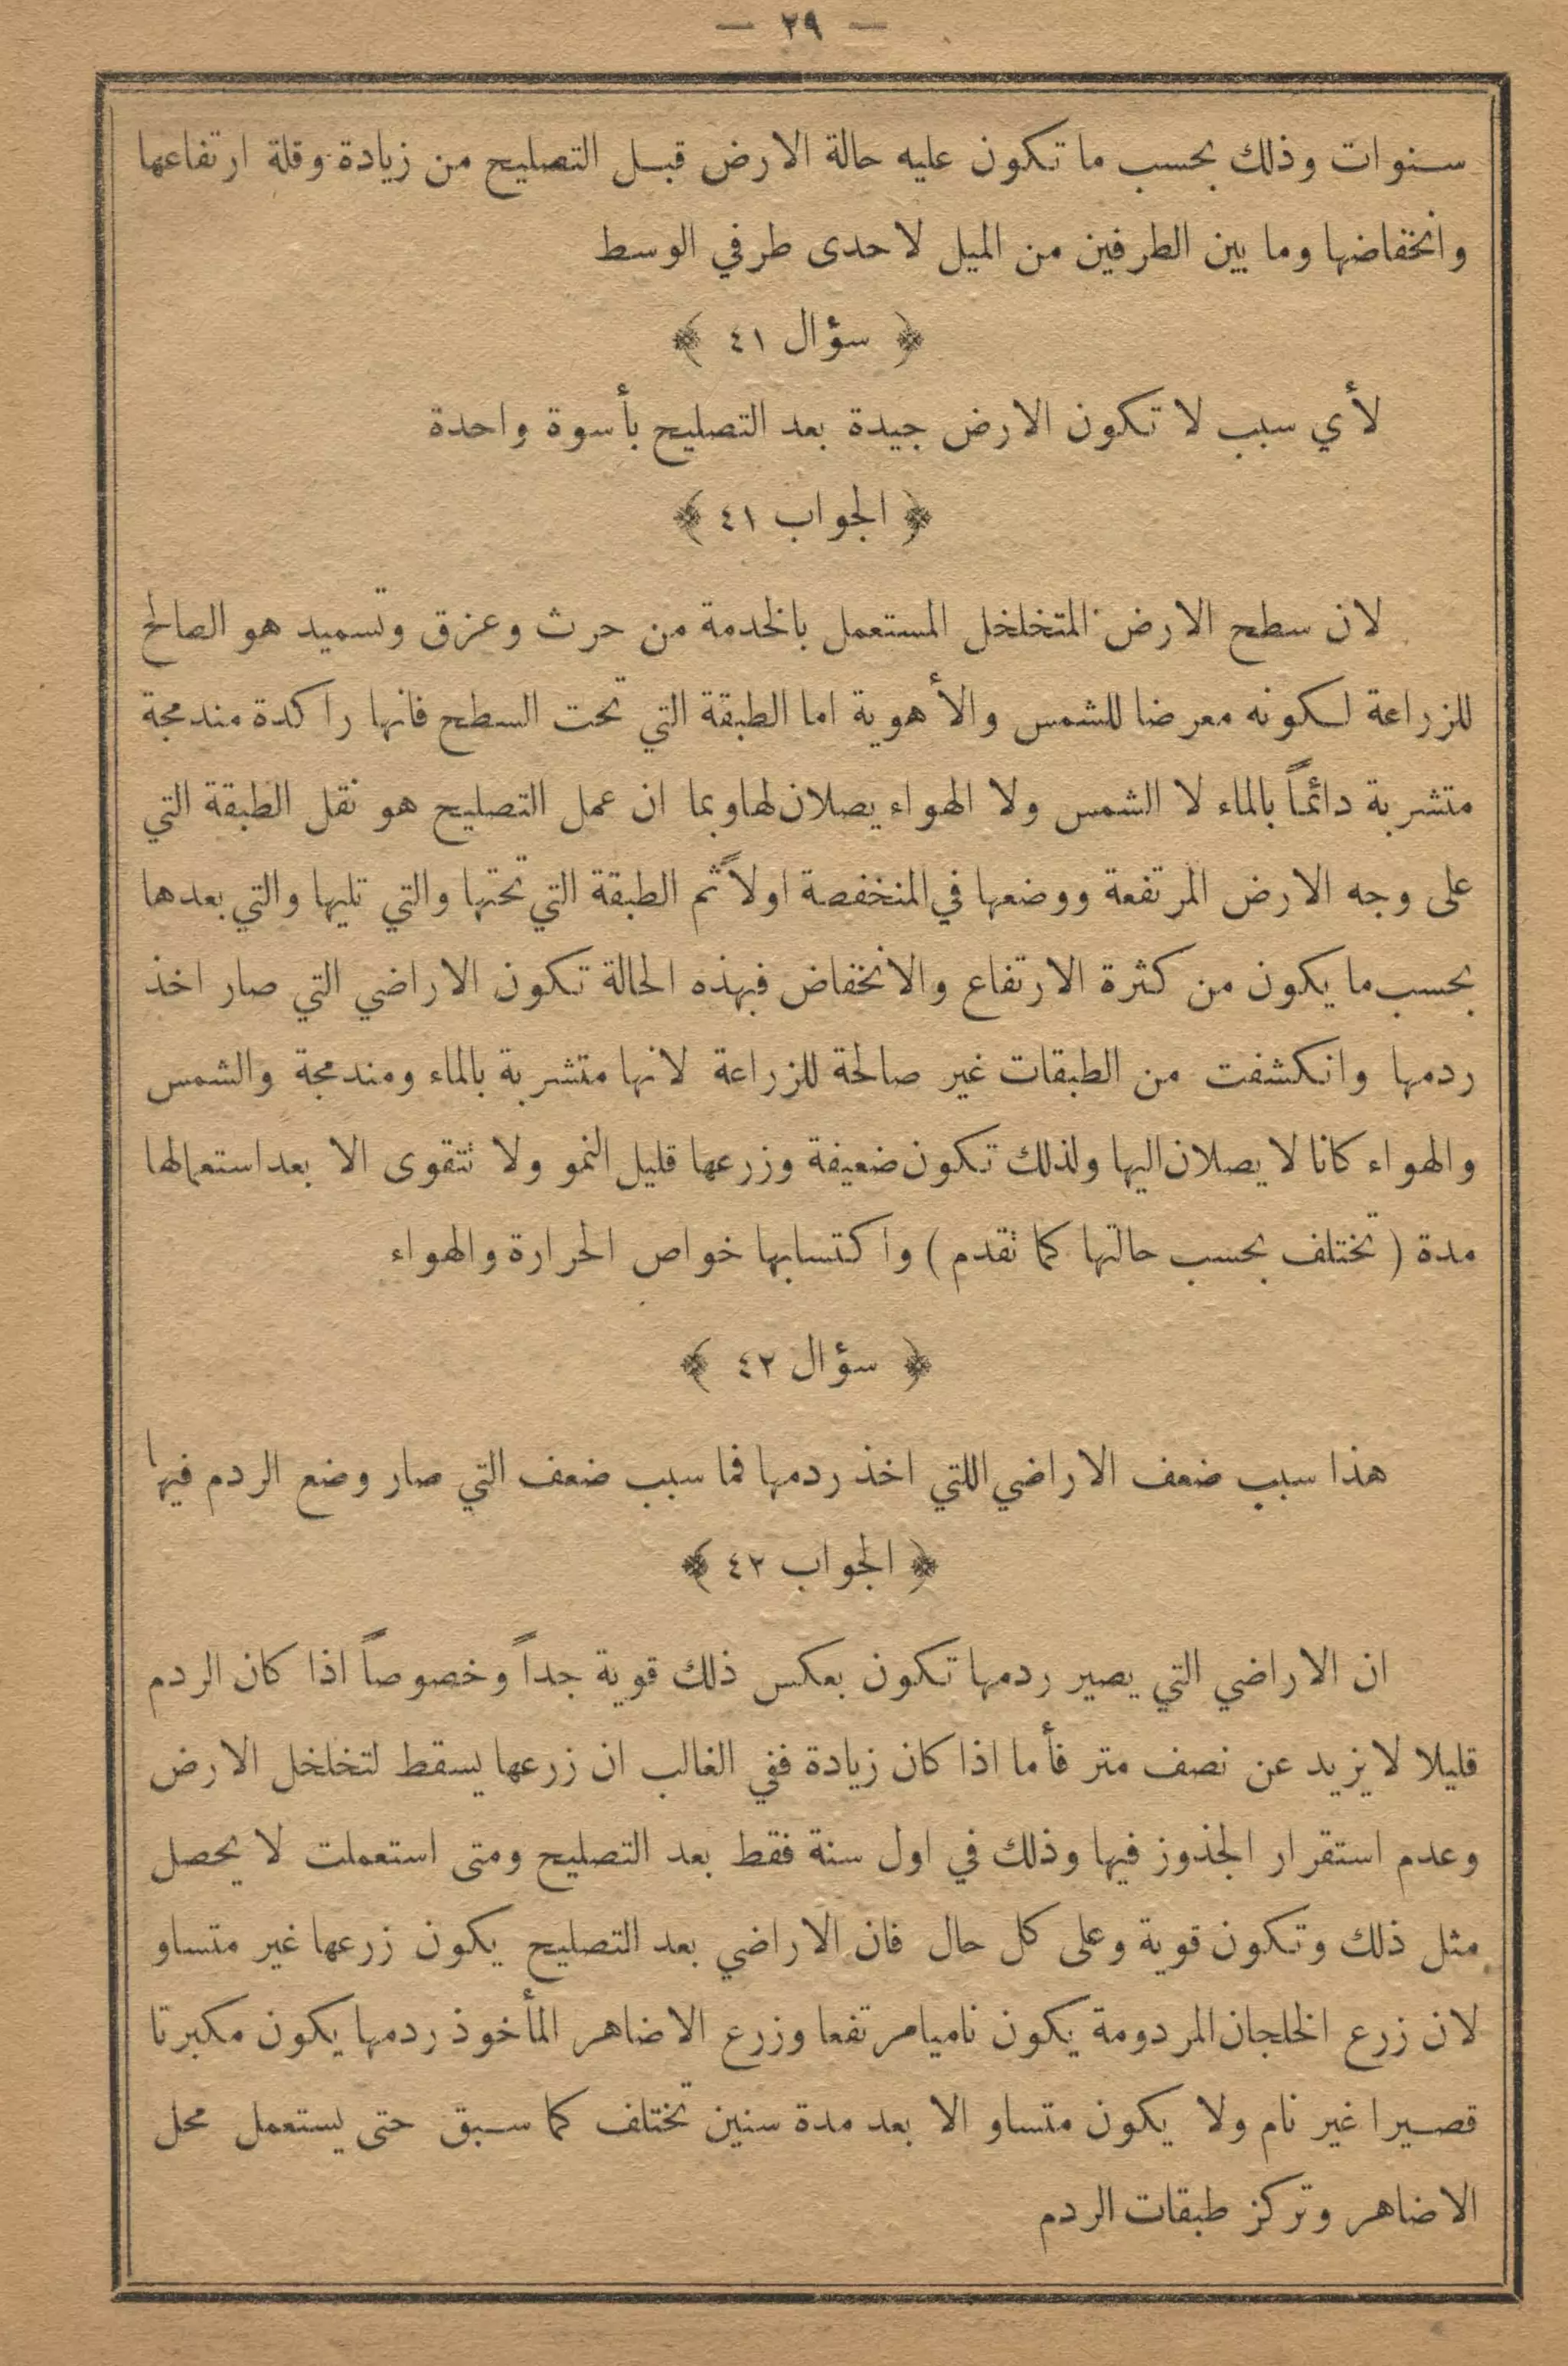 — ٢٩ —
سنوات وذلك بحسب ما تكون عليه حالة الارض قبل التصليح من زيادة وقلة ارتفاعها
وانخفاضها وما بين الطرفين من الميل لاحدى طرفي الوسط
﴿ سؤال ٤١ ﴾
لأي سبب لا تكون الارض جيدة بعد التصليح بأسوة واحدة
﴿ الجواب ٤١ ﴾
لان سطح الارض المتخلخل المستعمل بالخدمة من حرث وعزق وتسميد هو الصالح
للزراعة لكونه معرضا للشمس والأهوية اما الطبقة التي تحت السطح فانها راكدة مندمجة
متشربة دائماً بالماء لا الشمس ولا الهواء يصلان لها وبما ان عمل التصليح هو نقل الطبقة التي
على وجه الارض المرتفعة ووضعها في المنخفصة اولاً ثم الطبقة التي تحتها والتي تليها والتي بعدها
بحسب ما يكون من كثرة الارتفاع والانخفاض فبهذه الحالة تكون الاراضي التي صار اخذ
ردمها وانكشفت من الطبقات غير صالحة للزراعة لانها متشربة بالماء ومندمجة والشمس
والهواء كانا لا يصلان اليها ولذلك تكون ضعيفة وزرعها قليل النمو ولا نتقوى الا بعد استعمالها
مدة ( تختلف بحسب حالتها كما نقدم ) واكتسابها خواص الحرارة والهواء
﴿ سؤال ٤٢ ﴾
هذا سبب ضعف الاراضي اللتي اخذ ردمها فما سبب ضعف التي صار وضع الردم فيها
﴿ الجواب ٤٢ ﴾
ان الاراضي التي يصير ردمها تكون بعكس ذلك قوية جداً وخصوصاً اذا كان الردم
قليلا لا يزيد عن نصف متر فأما اذا كان زيادة ففي الغالب ان زرعها يسقط لتخلخل الارض
وعدم استقرار الجذوز فيها وذلك في اول سنة فقط بعد التصليح ومتى استعملت لا يحصل
مثل ذلك وتكون قوية وعلى كل حال فان الاراضي بعد التصليح يكون زرعها غير متساو
لان زرع الخلجان المردومة يكون ناميا مرتفعا وزرع الاضاهر المأخوذ ردمها يكون مكبرتا
قصيرا غير نام ولا يكون متساو الا بعد مدة سنين تختلف كما سبق حتى يستعمل محل
الاضاهر وتركز طبقات الردم